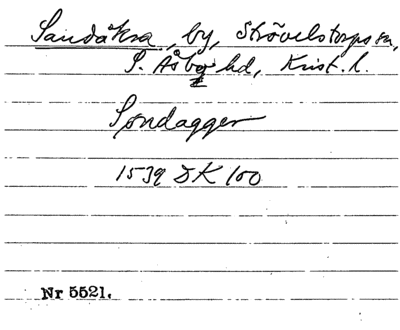 Sandåkra, by, Strövelstorps sn,
S. Åsbo hd, Krist. l.
Søndagger
1539 DK 100
Nr 5521.